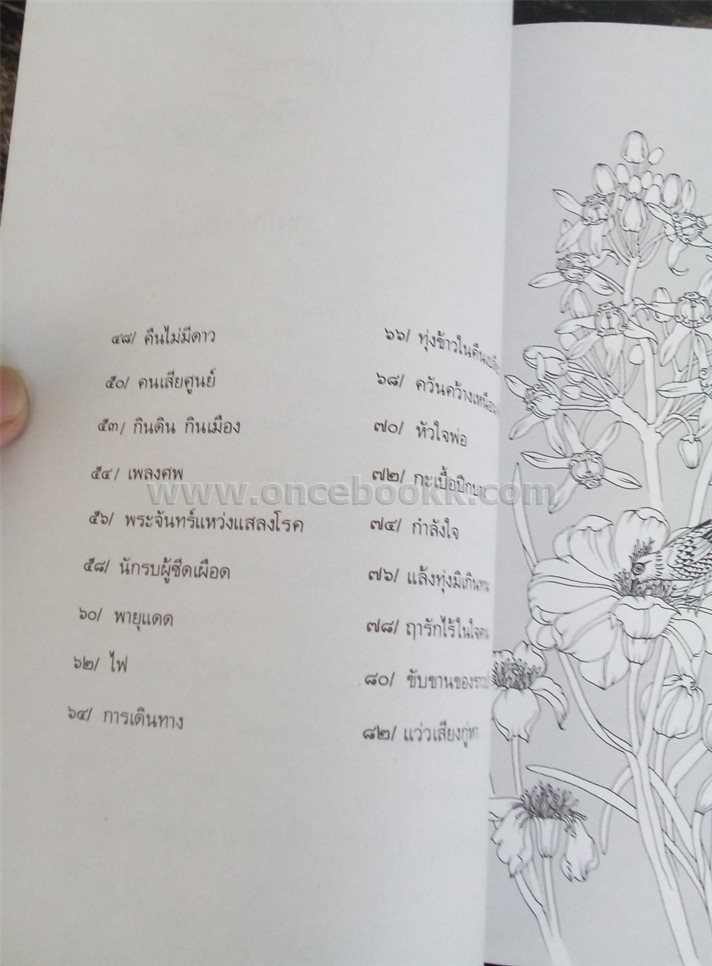 ๔๘/ คืนไม่มีดาว
๕๐/ คนเสียศูนย์
๕๓/ กินดิน กินเมือง
๕๔/ เพลงศพ
๕๖/ พระจันทร์แหว่งแสลงโรค
๕๘/ นักรบผู้ซีดเผือด
๖๐/ พายุแดด
๖๒/ ไฟ
๖๔/ การเดินทาง
๖๖/ ทุ่งข้าวในคืน
๖๘/ ควันคว้าง
๗๐/ หัวใจพ่อ
๗๒/ กะเบื้อปีก
๗๔/ กำลังใจ
๗๖/ แล้งทุ่งมิเกิน
๗๘/ ฤารักไร้ในใจ
๘๐/ ขับขานของ
๘๒/ แว่วเสียงกู่
www.oncebookk.com